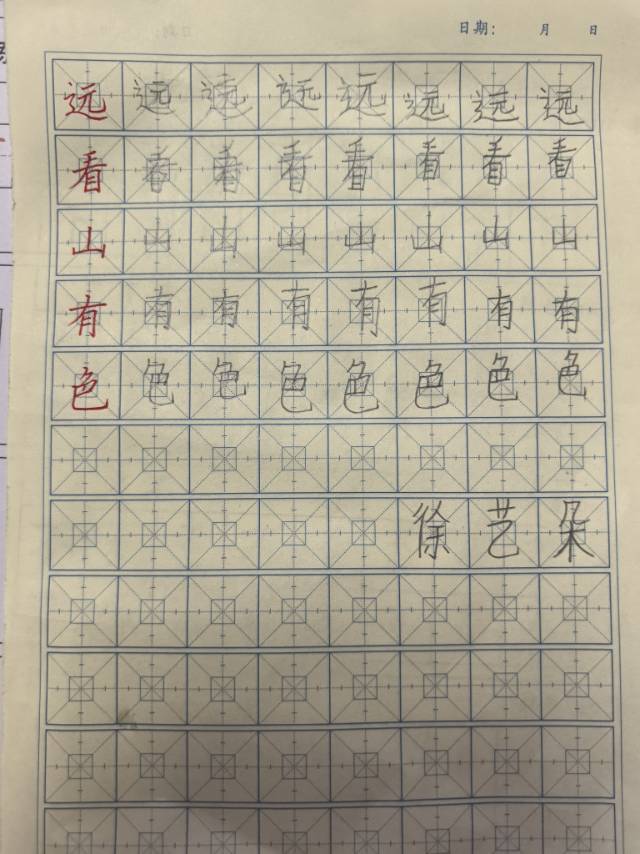 日期: 月 日
远 远 远 远 远 远 远 远
看 看 看 看 看 看 看 看
山 山 山 山 山 山 山 山
有 有 有 有 有 有 有 有
色 色 色 色 色 色 色 色
徐 艺 朵